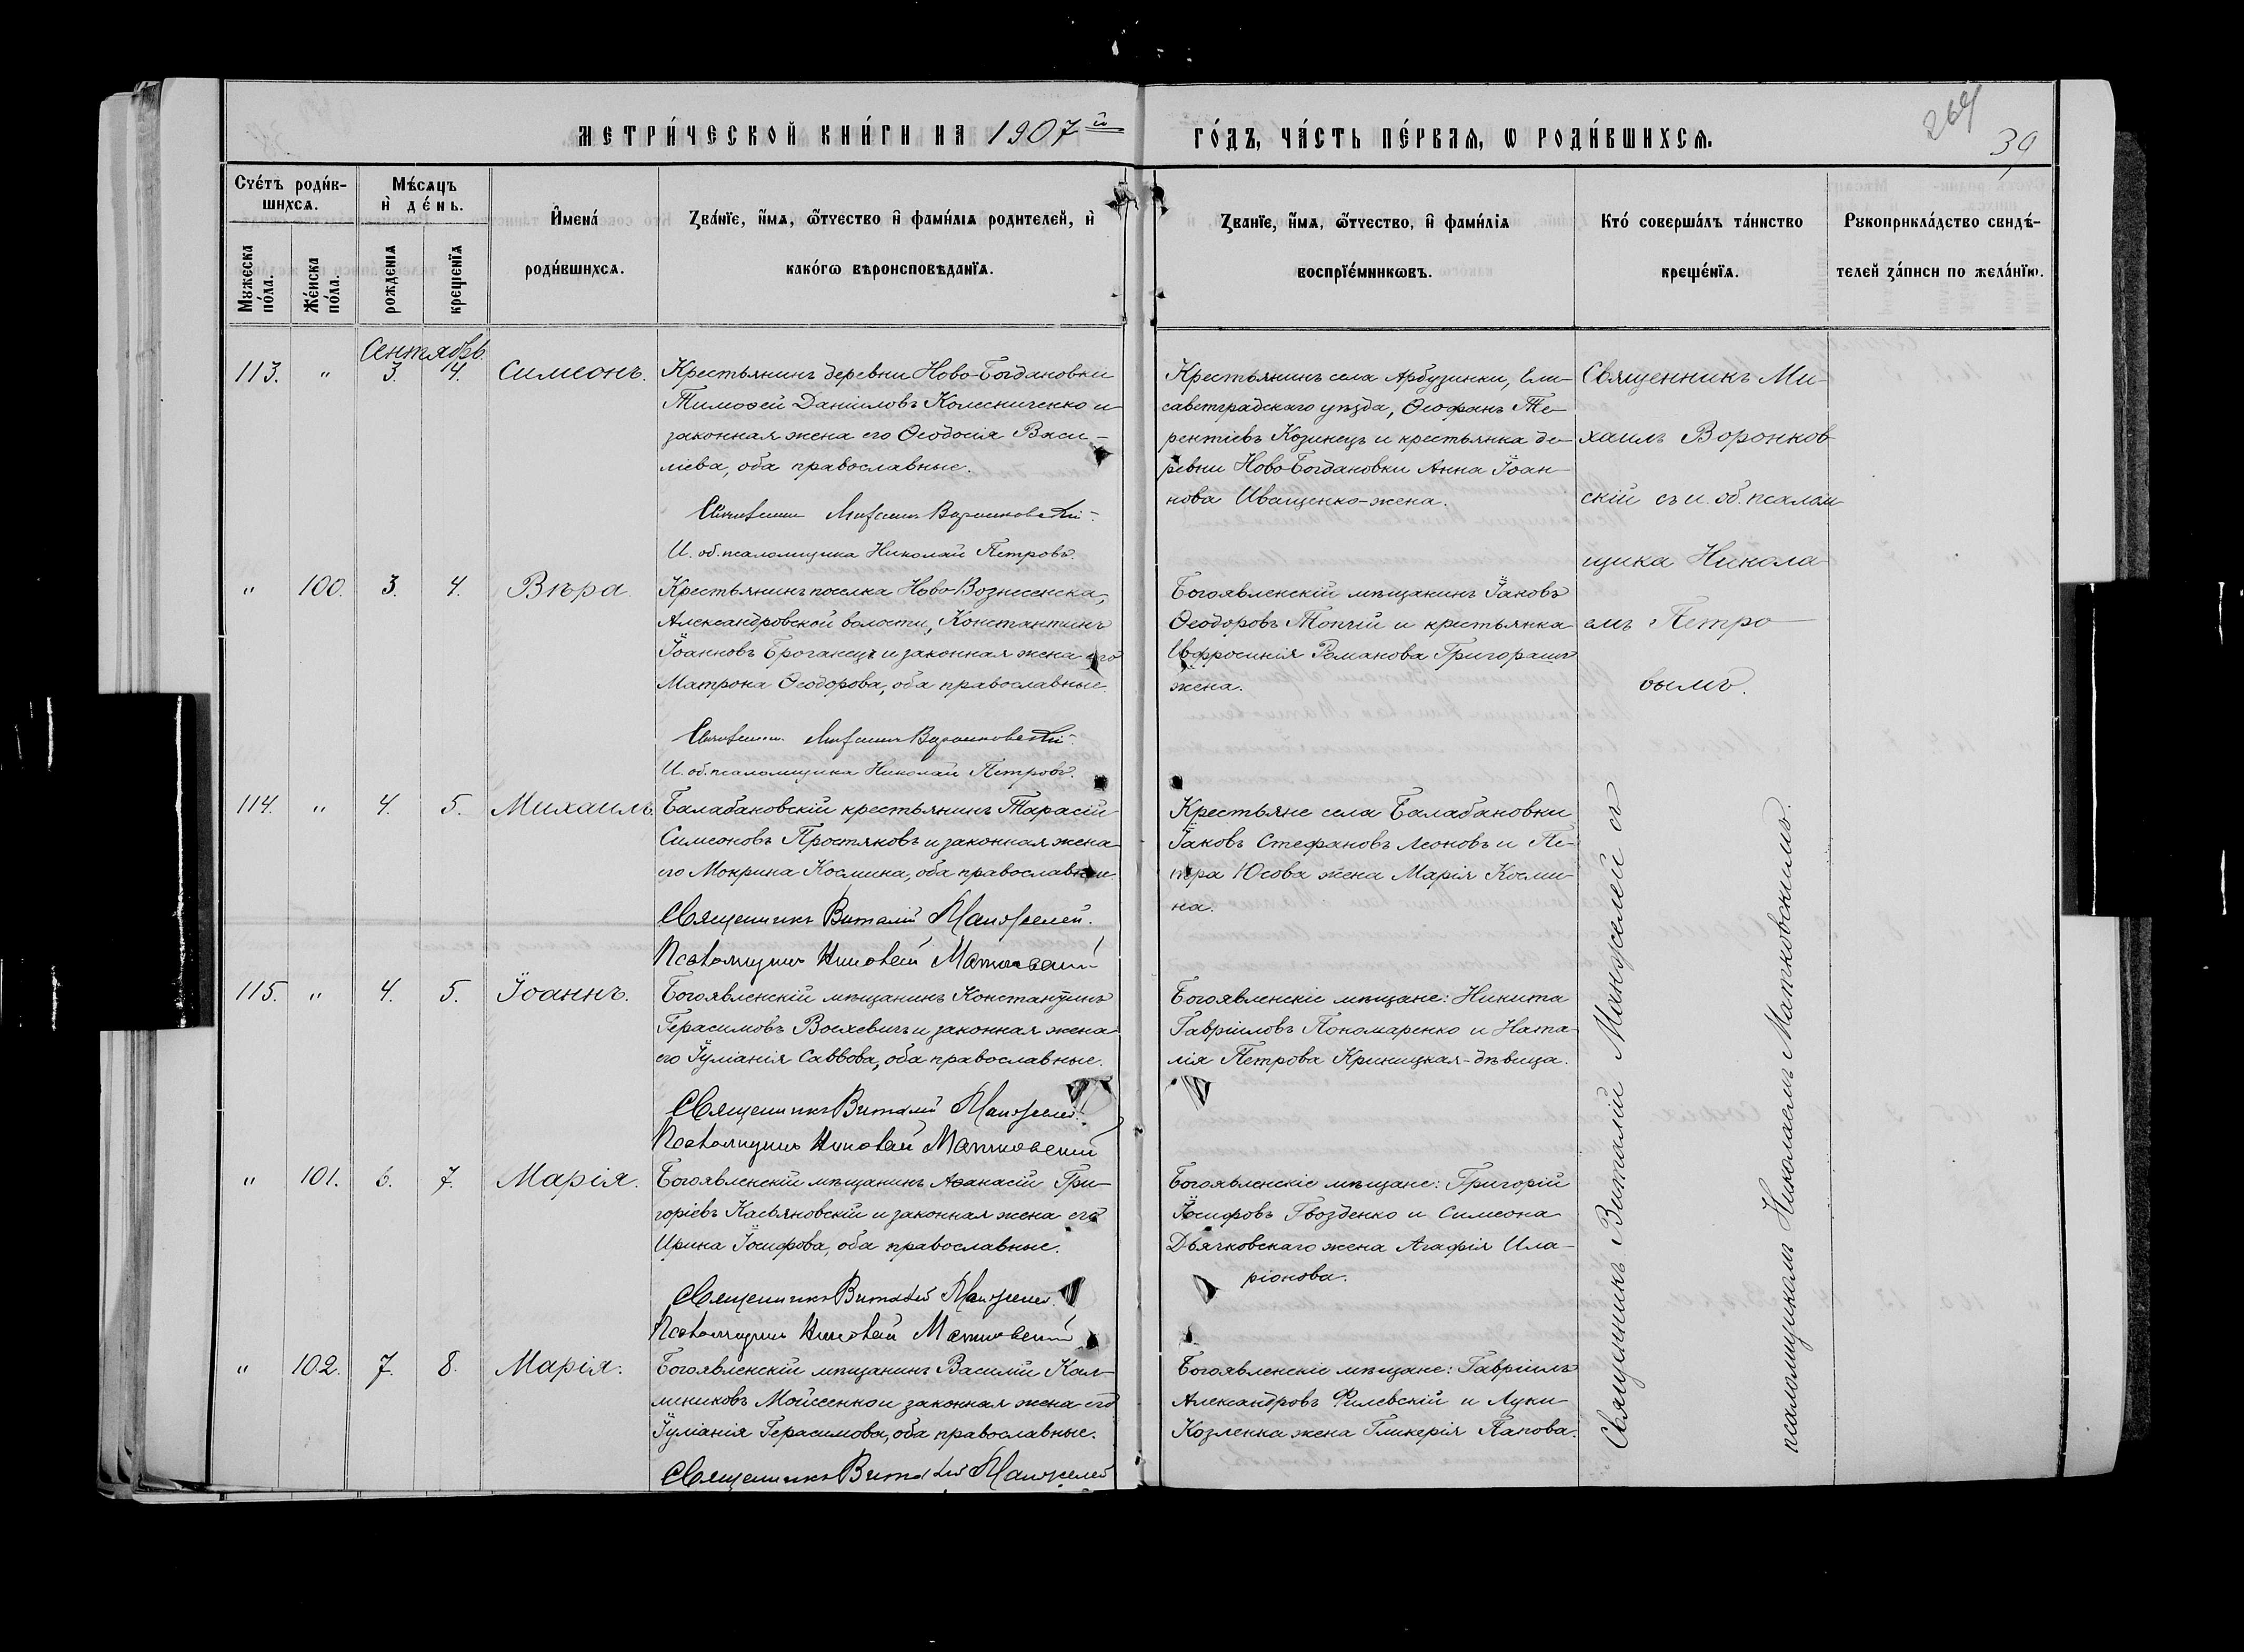 МЕТРИ́ЧЕСКОЙ КНИ́ГИ НА 1907й
ГО́ДЪ, ЧА́СТЬ ПЕ́РВАѦ, Ѡ РОДИ́ВШИХСѦ.
264
39
Счетъ роди́в-
шихсѧ.
Мѣ́сѧцъ
и де́нь.
Мꙋжеска
по́ла.
Же́нска
по́ла.
рожденїѧ
крещенїѧ
Имена́
роди́вшихсѧ.
Зва́нїе, имѧ, ѿтчество и фами́лїѧ родителей, и
како́гѡ вѣроисповѣданїѧ.
Званїе, имѧ, ѿтчество, и фами́лїѧ
воспрїе́мникѡвъ.
Кто́ соверша́лъ та́инство
креще́нїѧ.
Рꙋкоприкла́дство свидѣ́-
телей за́писи по жела́нїю.
Сентябрь.
113. " 3. 4. Симеонъ.
Крестьянинъ деревни Ново-Богдановки
Тимоѳей Даніиловъ Колесниченко и
законная жена его Ѳеодосія Васи-
ліева, оба православные.
Священникъ Михаилъ Воронковскій.
И. об. псаломщика Николай Петровъ.
Крестьянинъ села Арбузинки, Ели-
саветградскаго уѣзда, Ѳеофанъ Те-
рентіевъ Козинецъ и крестьянка де-
ревни Ново-Богдановки Анна Іоан-
нова Иващенко-жена.
Священникъ Ми-
хаилъ Воронков-
скій съ и. об. псалом-
щика Никола-
емъ Петро-
вымъ.
" 100. 3. 4. Вѣра.
Крестьянинъ поселка Ново-Вознесенска,
Александровской волости, Константинъ
Іоанновъ Броганецъ и законная жена его
Матрона Ѳеодорова, оба православные.
Священникъ Михаилъ Воронковскій.
И. об. псаломщика Николай Петровъ.
Богоявленскій мѣщанинъ Іаковъ
Ѳеодоровъ Топчій и крестьянка
Ефросинія Романова Григорашъ
жена.
114. " 4. 5. Михаилъ.
Балабановскій крестьянинъ Тарасій
Симеоновъ Простяковъ и законная жена
его Мокрина Космина, оба православные.
Священникъ Виталій Манжелей.
Псаломщикъ Николай Матковскій
Крестьяне села Балабановки
Іаковъ Стефановъ Леоновъ и Пе-
тра Юсова жена Марія Косми-
на.
115. " 4. 5. Іоаннъ.
Богоявленскій мѣщанинъ Константинъ
Герасимовъ Воехевичъ и законная жена
его Іуліанія Саввова, оба православные.
Священникъ Виталій Манжелей.
Псаломщикъ Николай Матковскій
Богоявленскіе мѣщане: Никита
Гавріиловъ Пономаренко и Ната-
лія Петрова Криницкая-дѣвица.
" 101. 6. 7. Марія.
Богоявленскій мѣщанинъ Аѳанасій Гри-
горіевъ Касьяновскій и законная жена его
Ирина Іосифова, оба православные.
Священникъ Виталій Манжелей.
Псаломщикъ Николай Матковскій
Богоявленскіе мѣщане: Григорій
Іосифовъ Гвозденко и Симеона
Дьячковскаго жена Агафія Ила-
ріонова.
" 102. 7. 8. Марія.
Богоявленскій мѣщанинъ Василій Кал-
линиковъ Мойсеенко и законная жена его
Іуліанія Герасимова, оба православные.
Священникъ Виталій Манжелей
Богоявленскіе мѣщане: Гавріилъ
Александровъ Филевскій и Луки
Козленка жена Гликерія Папова.
Священникъ Виталій Манжелей съ
псаломщикомъ Николаемъ Матковскимъ.